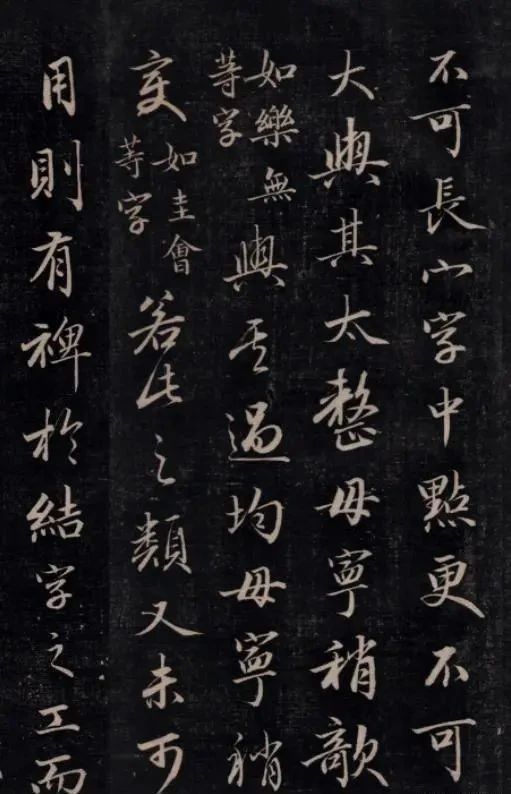 不可長宀字中點更不可
大與其太整毋寧稍欹
如樂無
等字
與其過均毋寧稍
变
如圭會
等字
若此之類又未可
用則有裨於結字之工而